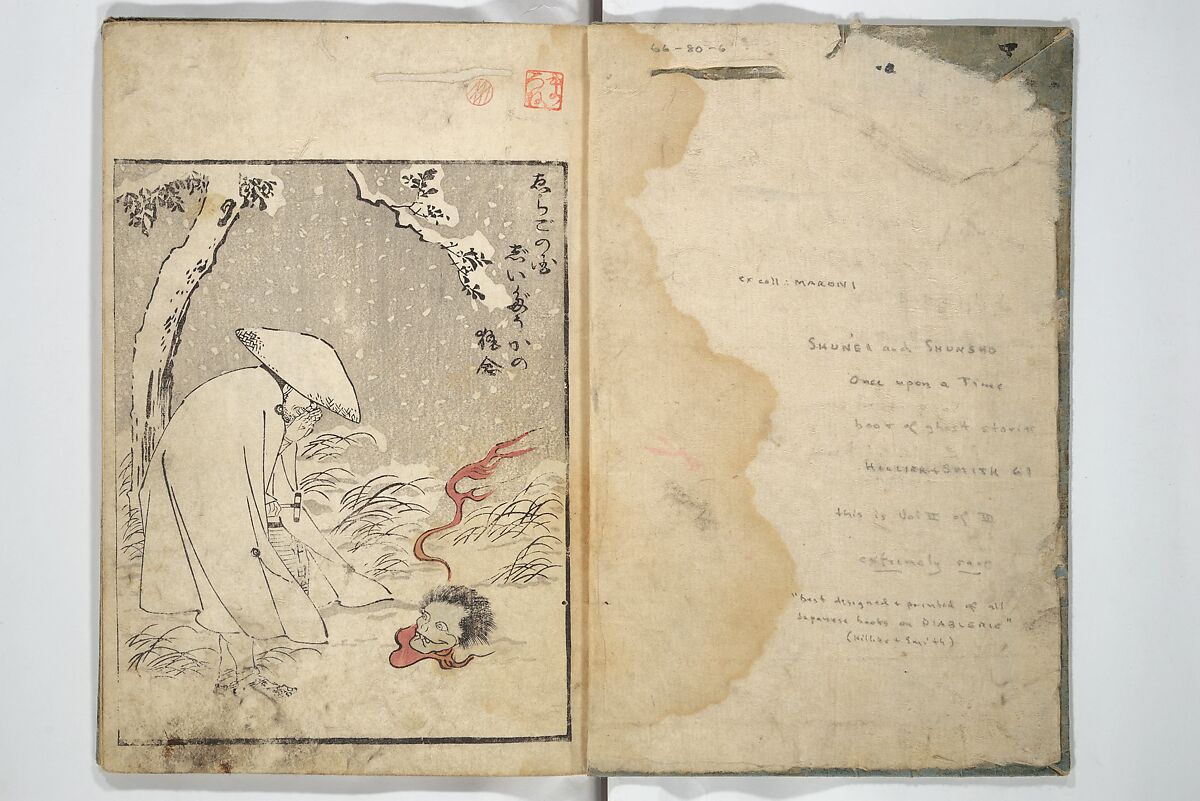 ゑちごの国
66-80-6
ex coll: MARONI
SHUN'EI and SHUNSHO
Once upon a Time
book of ghost stories
HILLIER & SMITH 61
this is Vol II of III
extremely rare
"Best designed & printed of all
Japanese books on DIABLERIE"
(Hillier & Smith)